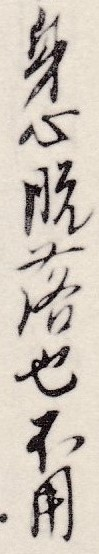 身心脱落也不用